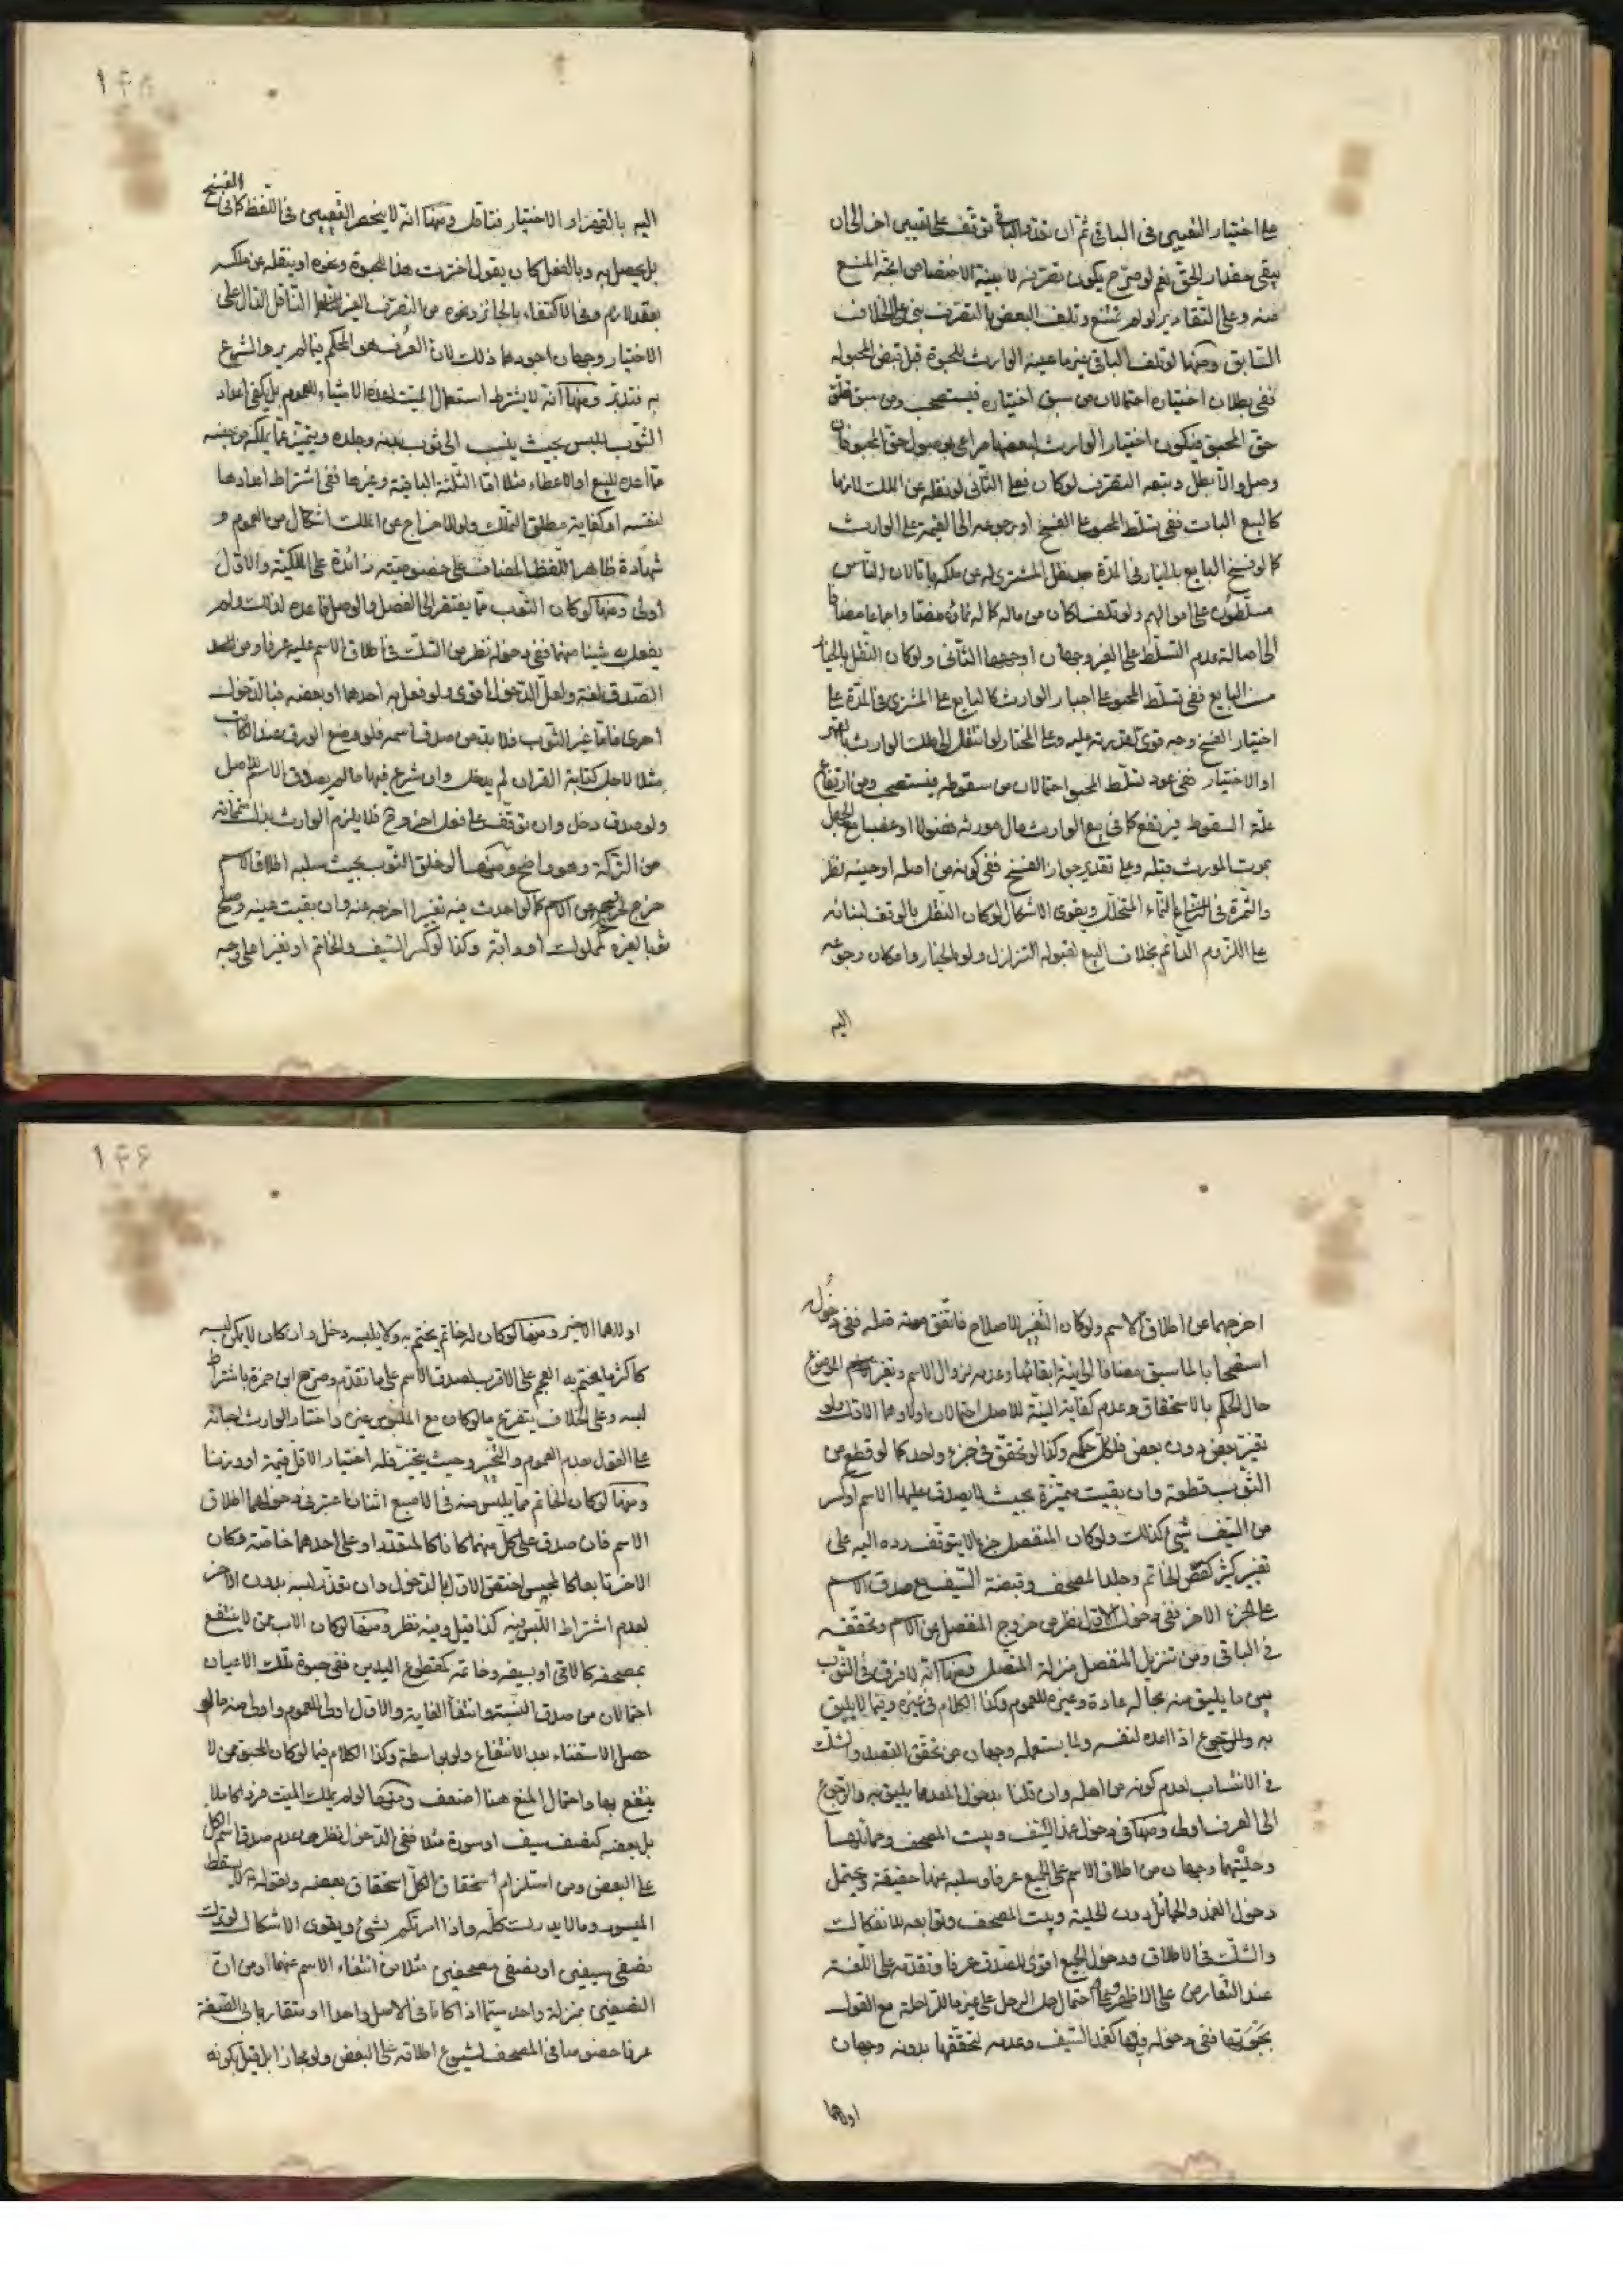 على اختيار التعيين في الباقي ثم ان نقد والباقي توقف على تعيين اخر الى ان
يبقى مقدار الحق نعم لو صرح بكون تصرفه لا بنية الاختصاص اتجه المنع
منه وعلى التقادير لو لم نمنع وتلف البعض بالتصرف بنى على الخلاف
السابق ومنها لو تلف الباقي غير ما عينه الوارث للحبوة قبل قبض المحبو له
ففي بطلان اختياره احتمالان من سبق اختياره فيستصحب ومن سبق تعلق
حق المحبو فيكون اختيار الوارث لبعضها مراعى بوصول حق المحبو فان
وصل والا بطل وتبعه التصرف لو كان فعلى الثاني لو نقله عن الملك لازما
كالبيع البات ففي تسلط المحبو على الفسخ او رجوعه الى القيمة على الوارث
كما لو فسخ البايع بالخيار في المدة بعد نقل المشتري له عن ملكه باتا لان الناس
مسلطون على اموالهم ولو تلف لكان من ماله كما له نماؤه مضافا
الى اصالة عدم التسلط على الغير وجهان اوجههما الثاني ولو كان النقل بالخيار
من البايع ففي تسلط المحبو على اجبار الوارث كالبايع على المشتري في المدة على
اختيار الفسخ وجه قوي لقدرته عليه وعلى المختار لو انتقل الى ملك الوارث بالقهر
او الاختيار ففي عود تسلط المحبو احتمالان من سقوطه فيستصحب ومن ارتفاع
علة السقوط فيرتفع كما في بيع الوارث مال مورثه فضولا او غصبا مع الجهل
بموت المورث قبله وعلى تقدير جواز الفسخ ففي كونه من اصله او حينه نظر
والثمرة في النماء المتخلل ويقوى الاشكال لو كان النقل بالوقف لبنائه
على اللزوم الدائم بخلاف البيع لقبوله التزلزل ولو بالخيار وامكان رجوعه
اليه
١٤٨
اليه بالقهر او الاختيار فتامل ومنها انه لا ينحصر التعيين في اللفظ كما في الفسخ
بل يحصل به وبالفعل كان يقول اخترت هذا للحبوة ونحوه او ينقله عن ملكه
بعقد لازم وفي الاكتفاء بالجائز ونحوه من التصرف الغير الناقل الدال على
الاختيار وجهان اجودهما ذلك لان العرف هو المحكم فيما لم يرد الشرع
به فتدبر ومنها انه لا يشترط استعمال الميت لهذه الاشياء للعموم بل يكفي اعداد
الثوب للبس بحيث ينسب الى ثوب بدنه وجلده ويتميز عما يملكه من جنسه
مما اعده للبيع او الاعطاء مثلا اما الثلثة الباقية وغيرها ففي اشتراط اعدادها
لنفسه او كفاية مطلق التملك ولو للاخراج عن الملك اشكال من العموم و
شهادة ظاهر اللفظ المضاف على خصوصية زائدة على الملكية والاول
اولى ومنها لو كان الثوب مما يفتقر الى الفصل والوصل فاعده لذلك ولم
يفعل به شيئا منهما ففي دخوله نظر من الشك في اطلاق الاسم عليه عرفا ومن
الصدق لغة ولعل الدخول اقوى ولو فعل به احدهما او بعضه فبالدخول
احرى فاما غير الثوب فلا بد من صدق اسمه فلو وضع الورق عند الكاتب
مثلا لاجل كتابة القران لم يدخل وان شرع فيها ما لم يصدق الاسم بالاصل
ولو صدق دخل وان توقف على فعل اخر وح فلا يلزم الوارث بذل
من التركة وهو واضح ومنها لو خلق الثوب بحيث سلبه اطلاق الاسم
خرج لخروجه عن الاسم كما لو احدث فيه تغييرا اخرجه عنه وان بقيت عينه وصلح
ثوبا لغيره كمملوك او دابة وكذا لو كسر السيف والخاتم او تغيرا على وجه
اخرجهما عن اطلاق الاسم ولو كان التغير للاصلاح فاتفق موته قبله ففي دخوله
استصحابا لما سبق مضافا الى نية ابقائها وعدمه لزوال الاسم وتغير الموضوع
حال الحكم بالاستحقاق وعدم كفاية النية للاصل احتمالان اولاهما الاول ولو
تغير بعض دون بعض فلكل حكمه وكذا لو تحقق في جزء واحد كما لو قطع من
الثوب قطعة وان بقيت متميزة بحيث لا يصدق عليها الاسم او كسر
من السيف شيء كذلك ولو كان المنفصل جزءا لا يتوقف رده اليه على
تغيير كثير كفص الخاتم وجلد المصحف وقبضة السيف مع صدق الاسم
على الجزء الاخر ففي دخول الاول نظر من خروج المنفصل عن الاسم وتحققه
في الباقي ومن تنزيل المنفصل منزلة المتصل ومنها انه لا فرق في الثوب
بين ما يليق منه بحاله عادة وغيره للعموم وكذا الكلام في غيره وفيما لا يليق
به والمرجوع اذا اعده لنفسه ولما يستعمله وجهان من تحقق القصد والشك
في الانتساب لعدم كونه من اهله وان قلنا بدخول المعد ما يليق به والرجوع
الى العرف اولى ومنها في دخول غمد السيف وبيت المصحف وحمائلهما
وحليتهما وجهان من اطلاق الاسم على الجميع عرفا وسلبه عنها حقيقة ويحتمل
دخول الغمد والحمائل دون الحلية وبيت المصحف وتوابعه للانفكاك
والشك في الاطلاق ودخول الجميع اقوى للصدق عرفا وتقدمه على اللغة
عند التعارض على الاظهر ومنها احتمل حمل الرحل على غير ما للراحلة مع القول
بحبوتها ففي دخوله فيها كغمد السيف وعدمه لتحققها بدونه وجهان
اولاهما
١٤٩
اولاهما الاخير ومنها لو كان له خاتم يختم به ولا يلبسه دخل وان كان لا يمكن لبسه
كاكثر ما يختم به العجم على الاقرب لصدق الاسم على ما تقدم وصرح ابن حمزة باشتراط
لبسه وعلى الخلاف يتفرع ما لو كان مع الملبوس غيره واختار الوارث لحبائه
على القول بعدم العموم والتخير وحيث يتخير فله اختيار الاقل قيمة او وزنا
ومنها لو كان الخاتم مما يلبس منه في الاصبع اثنان اعتبر في دخولهما اطلاق
الاسم فان صدق على كل منهما كانا كالمتعدد او على احدهما خاصة وكان
الاخر تابعا كالمحبس اختص الاول بالدخول وان تعذر لبسه بدون الاخر
لعدم اشتراط اللبس فيه كذا قيل وفيه نظر ومنها لو كان الاب ممن لا ينتفع
بمصحفه كالامي او بسيفه وخاتمه كمقطوع اليدين ففي حبوة تلك الاعيان
احتمالان من صدق النسبة وانتفاء الغاية والاول اولى للعموم واولى منه ما لو
حصل الاستغناء بعد الانتفاع ولو بواسطة وكذا الكلام فيما لو كان المحبو ممن لا
ينتفع بها واحتمال المنع هنا اضعف ومنها لو لم يملك الميت فردا كاملا
بل بعضه كنصف سيف او سورة مثلا ففي الدخول نظر من عدم صدق اسم الكل
على البعض ومن استلزام استحقاق الكل استحقاق بعضه ولقوله ع لا يسقط
الميسور وما لا يدرك كله واذا امرتكم بشيء ويقوى الاشكال لو ترك
نصفي سيفين او نصفي مصحفين مثلا من انتفاء الاسم عنهما ومن ان
النصفين بمنزلة واحد سيما اذا كانا في الاصل واحدا او متقاربا في الصفة
عرفا خصوصا في المصحف لشيوع اطلاقه على البعض ولو مجازا بل قيل بكونه